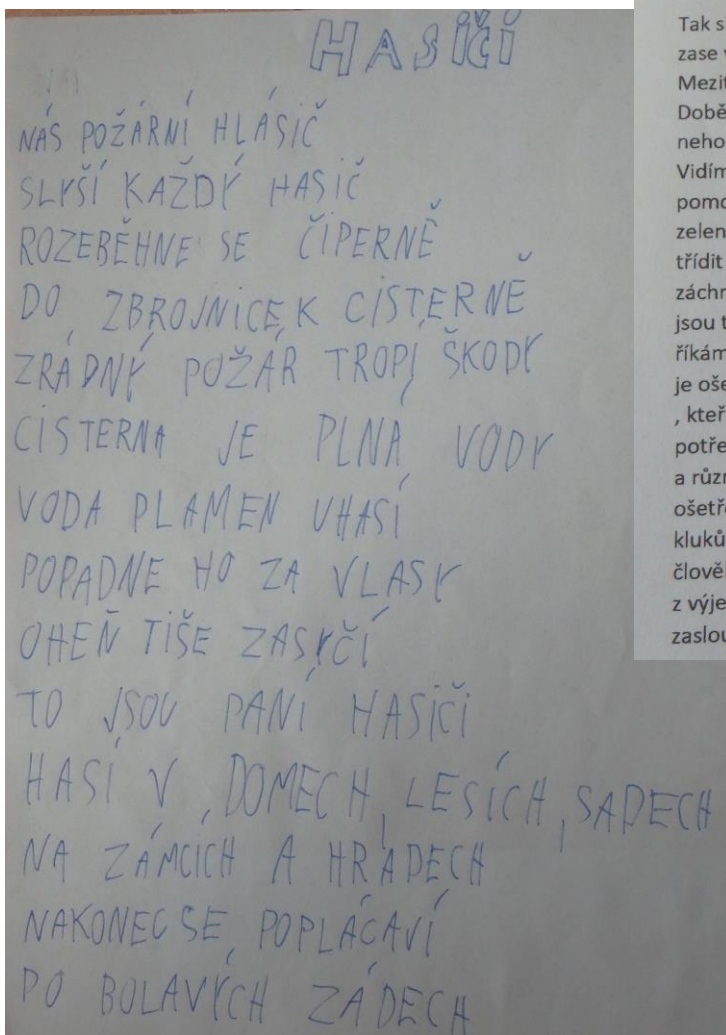 HASIČI
NÁS POŽÁRNÍ HLÁSIČ
SLYŠÍ KAŽDÝ HASIČ
ROZEBĚHNE SE ČIPERNĚ
DO ZBROJNICE, K CISTERNĚ
ZRÁDNÝ POŽÁR TROPÍ ŠKODY
CISTERNA JE PLNÁ VODY
VODA PLAMEN UHASÍ
POPADNE HO ZA VLASY
OHEŇ TIŠE ZASYČÍ
TO JSOU PANÍ HASIČI
HASÍ V DOMECH, LESÍCH, SADECH
NA ZÁMCÍCH A HRADECH
NAKONEC SE POPLÁCAVÍ
PO BOLAVÝCH ZÁDECH
Tak s
zase
Mezit
Době
neho
Vidím
pomo
zelen
třídit
záchr
jsou t
říkám
je oše
, kteř
potře
a různ
ošetř
kluků
člově
z výje
zaslou